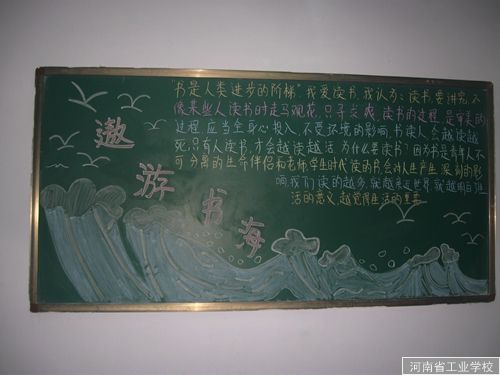 遨游书海
"书是人类进步的阶梯"我爱读书,我认为:读书,要讲究,不
像某些人读书时走马观花,只寻求
过程,应当全身心投入,不受环境的影响,书读人会越读越
死,只有人读书,才会越读越活,为什么要读书?因为书是青年人不
可分离的生命伴侣和老师,学生时代读的书,会对人生产生深刻的影
响,我们读的越多,就越亲近世界,就越明白生
活的意义,越觉得生活的重要
河南省工业学校